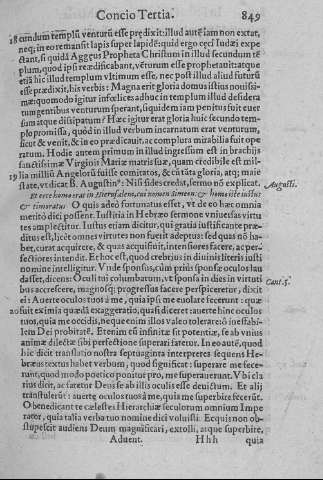 Concio Tertia. 849
18 cundum templū venturū esse prędixit: illud autē iam non extat,
neq; in eo remansit lapis super lapidē: quid ergo cęci Iudæi expe
ctant, si quidā Aggęus Propheta Christum in illud secundum tē
plum, quod ipsi reædificabant, vēturum esse prophetauit: atque
etiā hic illud templum vltimum esse, nec post illud aliud futurū
esse prædixit, his verbis: Magna erit gloria domus istius nouissi-
mæ: quomodo igitur infœlices adhuc in templum illud desidera
tum gentibus venturum sperant, siquidem iam penitus fuit euer
sum atque dissipatum? Hæc igitur erat gloria huic secundo tem-
plo promissa, quòd in illud verbum incarnatum erat venturum,
sicut & venit, & in eo prædicauit, ac complura mirabilia fuit ope
ratum. Hodie autem primum in illud ingressum est in brachijs
sanctissimæ Virginis Mariæ matris suæ, quam credibile est mil-
19 lia milliū Angelorū fuisse comitatos, & cū tāta gloria, atq; maie
state, vt dicat B. Augustinꝰ: Nisi fides credat, sermo nō explicat. Augusti.
Et ecce homo erat in Hierusalem, cui nomen Simeon: & homo iste iustus
& timoratus O quis adeò fortunatus esset, vt de eo hæc omnia
meritò dici possent. Iustitia in Hebræo sermone vniuersas virtu
tes amplectitur. Iustus etiam dicitur, qui gratia iustificante præ-
ditus est, licèt omnes virtutes non fuerit adeptus: sed quas nō ha-
bet, curat acquirere, & quas acquisiuit, intensiores facere, ac per-
fectiores intendit. Et hoc est, quod crebrius in diuinis literis iusti
nomine intelligitur. Vnde sponsus, cùm priùs sponsæ oculos lau
dasset, dicens: Oculi tui columbarum, vt sponsa in dies in virtuti
bus accrescere, magnosq; progressus facere perspiceretur, dixit Cant. 5.
ei: Auerte oculos tuos à me, quia ipsi me euolare fecerunt: quæ
20 fuit eximia quædā exaggeratio, quasi diceret: auerte hinc oculos
tuos, quia me occidis, neque enim illos valeo tolerare: ô ineffabi-
lem Dei probitatē. Etenim cū infinitæ sit potentiæ, se ab vnius
animæ dilectæ sibi perfectione superari fatetur. In eo autē, quod
hîc dicit translatio nostra septuaginta interpretes sequens He-
bræus textus habet verbum, quod significat: superare me fece-
runt, quod modo poëtico ponitur pro, me superauerunt. Vbi cla
riùs dicit, ac fatetur Deus se ab illis oculis esse deuictum. Et alij
transtulerūt: auerte oculos tuos à me, quia me superbire fecerūt.
O benedicant te cælestes Hierarchiæ seculorum omnium Impe
rator, quia talia verba tuo nomine dici voluisti. Ecquis non ob-
stupescit audiens Deum magnificari, extolli, atque superbire,
Aduent. Hhh quia